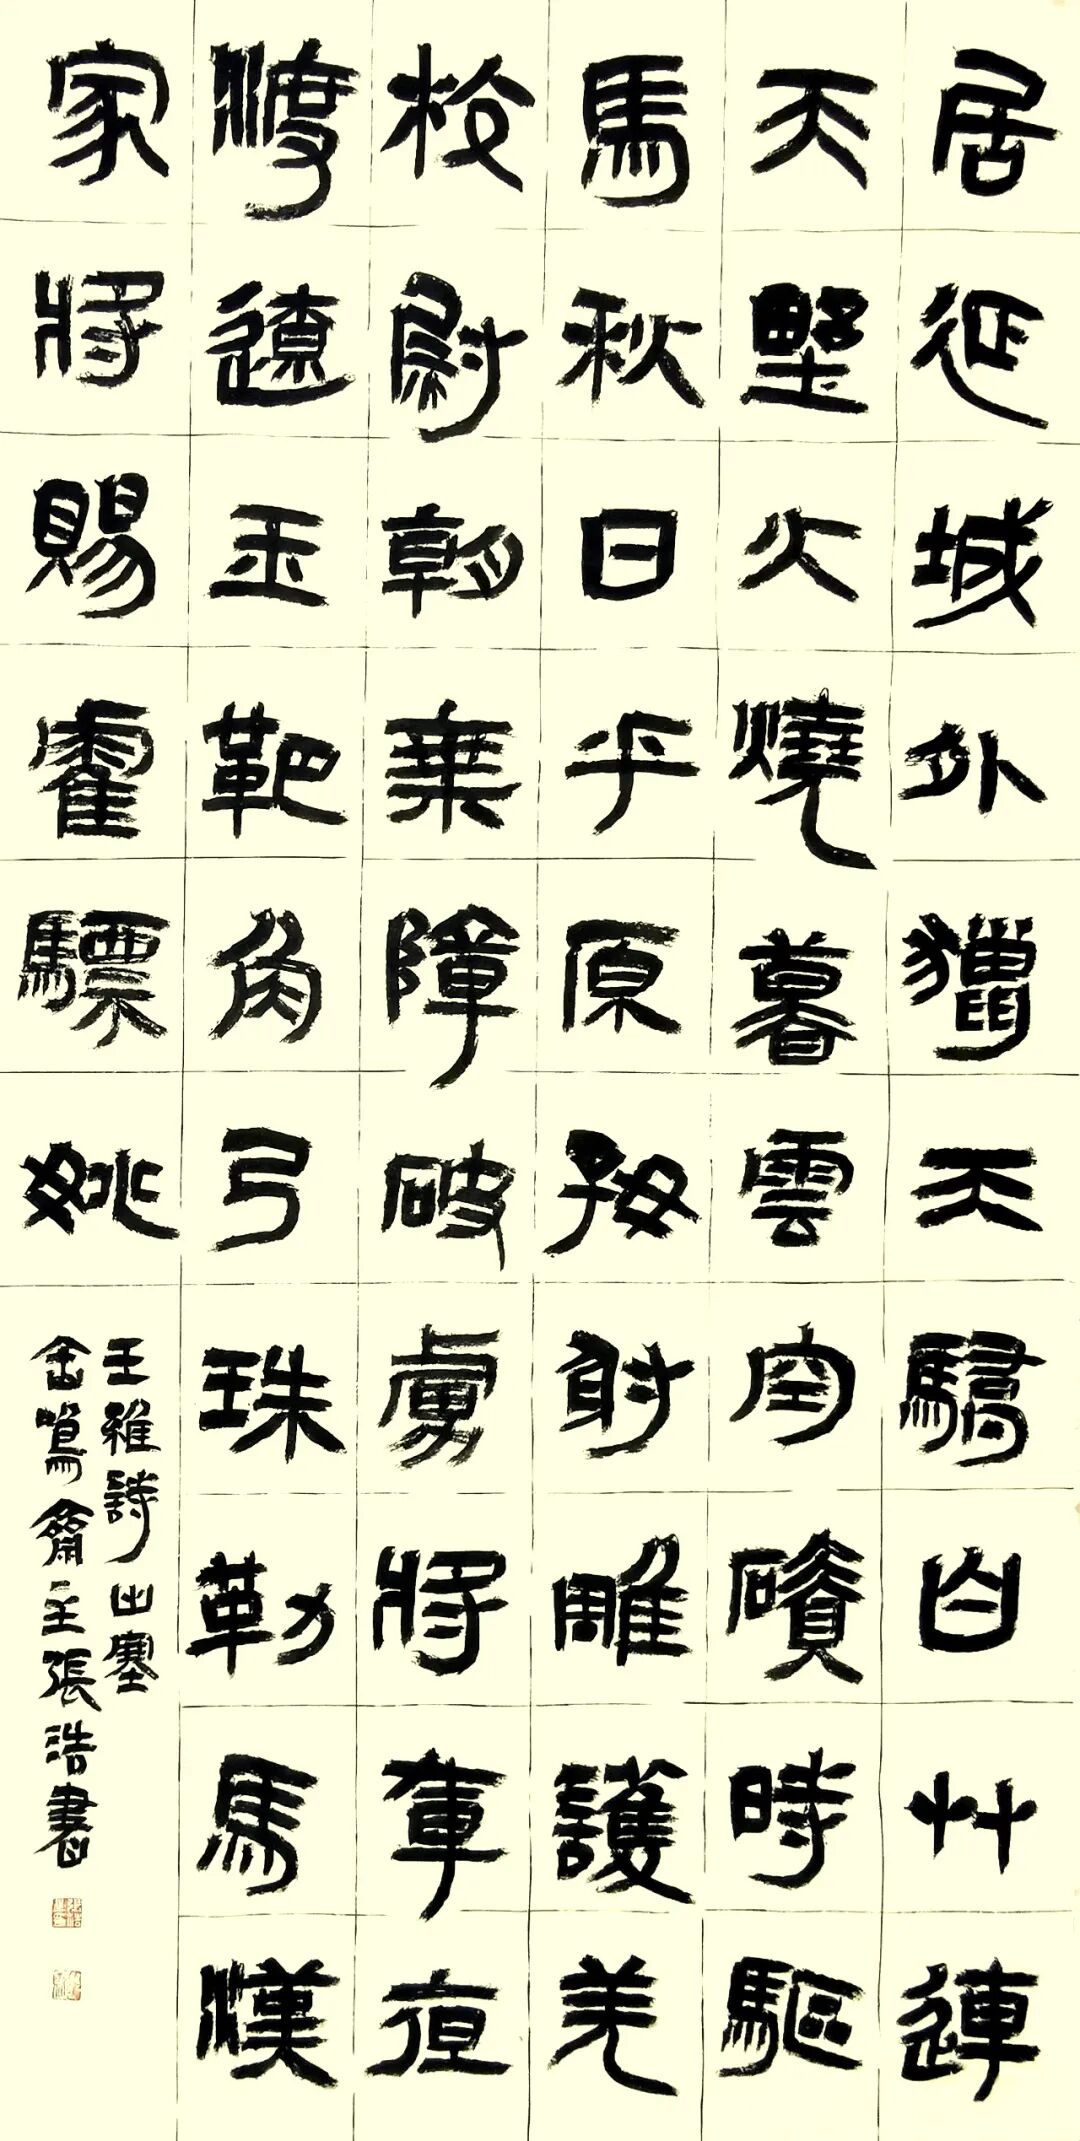 居延城外獵天驕白艸連
天野火燒暮雲空磧時驅
馬秋日平原好射雕護羌
校尉朝乘障破虜將軍夜
渡遼玉靶角弓珠勒馬漢
家將賜霍驃姚
王維詩出塞
缶鳴齋主張浩書